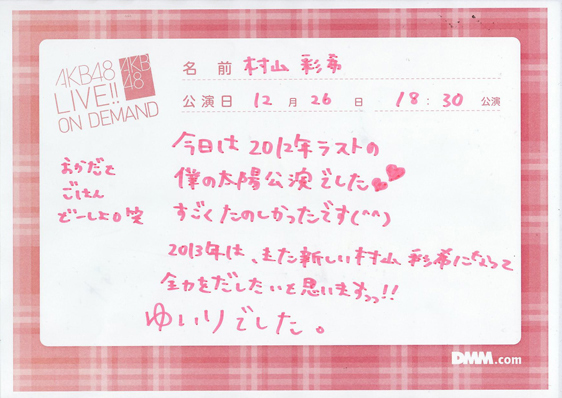 AKB48
LIVE!!
ON DEMAND
AKB
48
名 前 村山 彩希
公演日 12 月 26 日 18:30 公演
今日は2012年ラストの
僕の太陽公演でした
すごくたのしかったです(^^)
2013年は、また新しい村山 彩希になって
全力をだしたいと思いますっっ!!
ゆいりでした。
おかだと
ごはん
どーしよ 笑
DMM.com